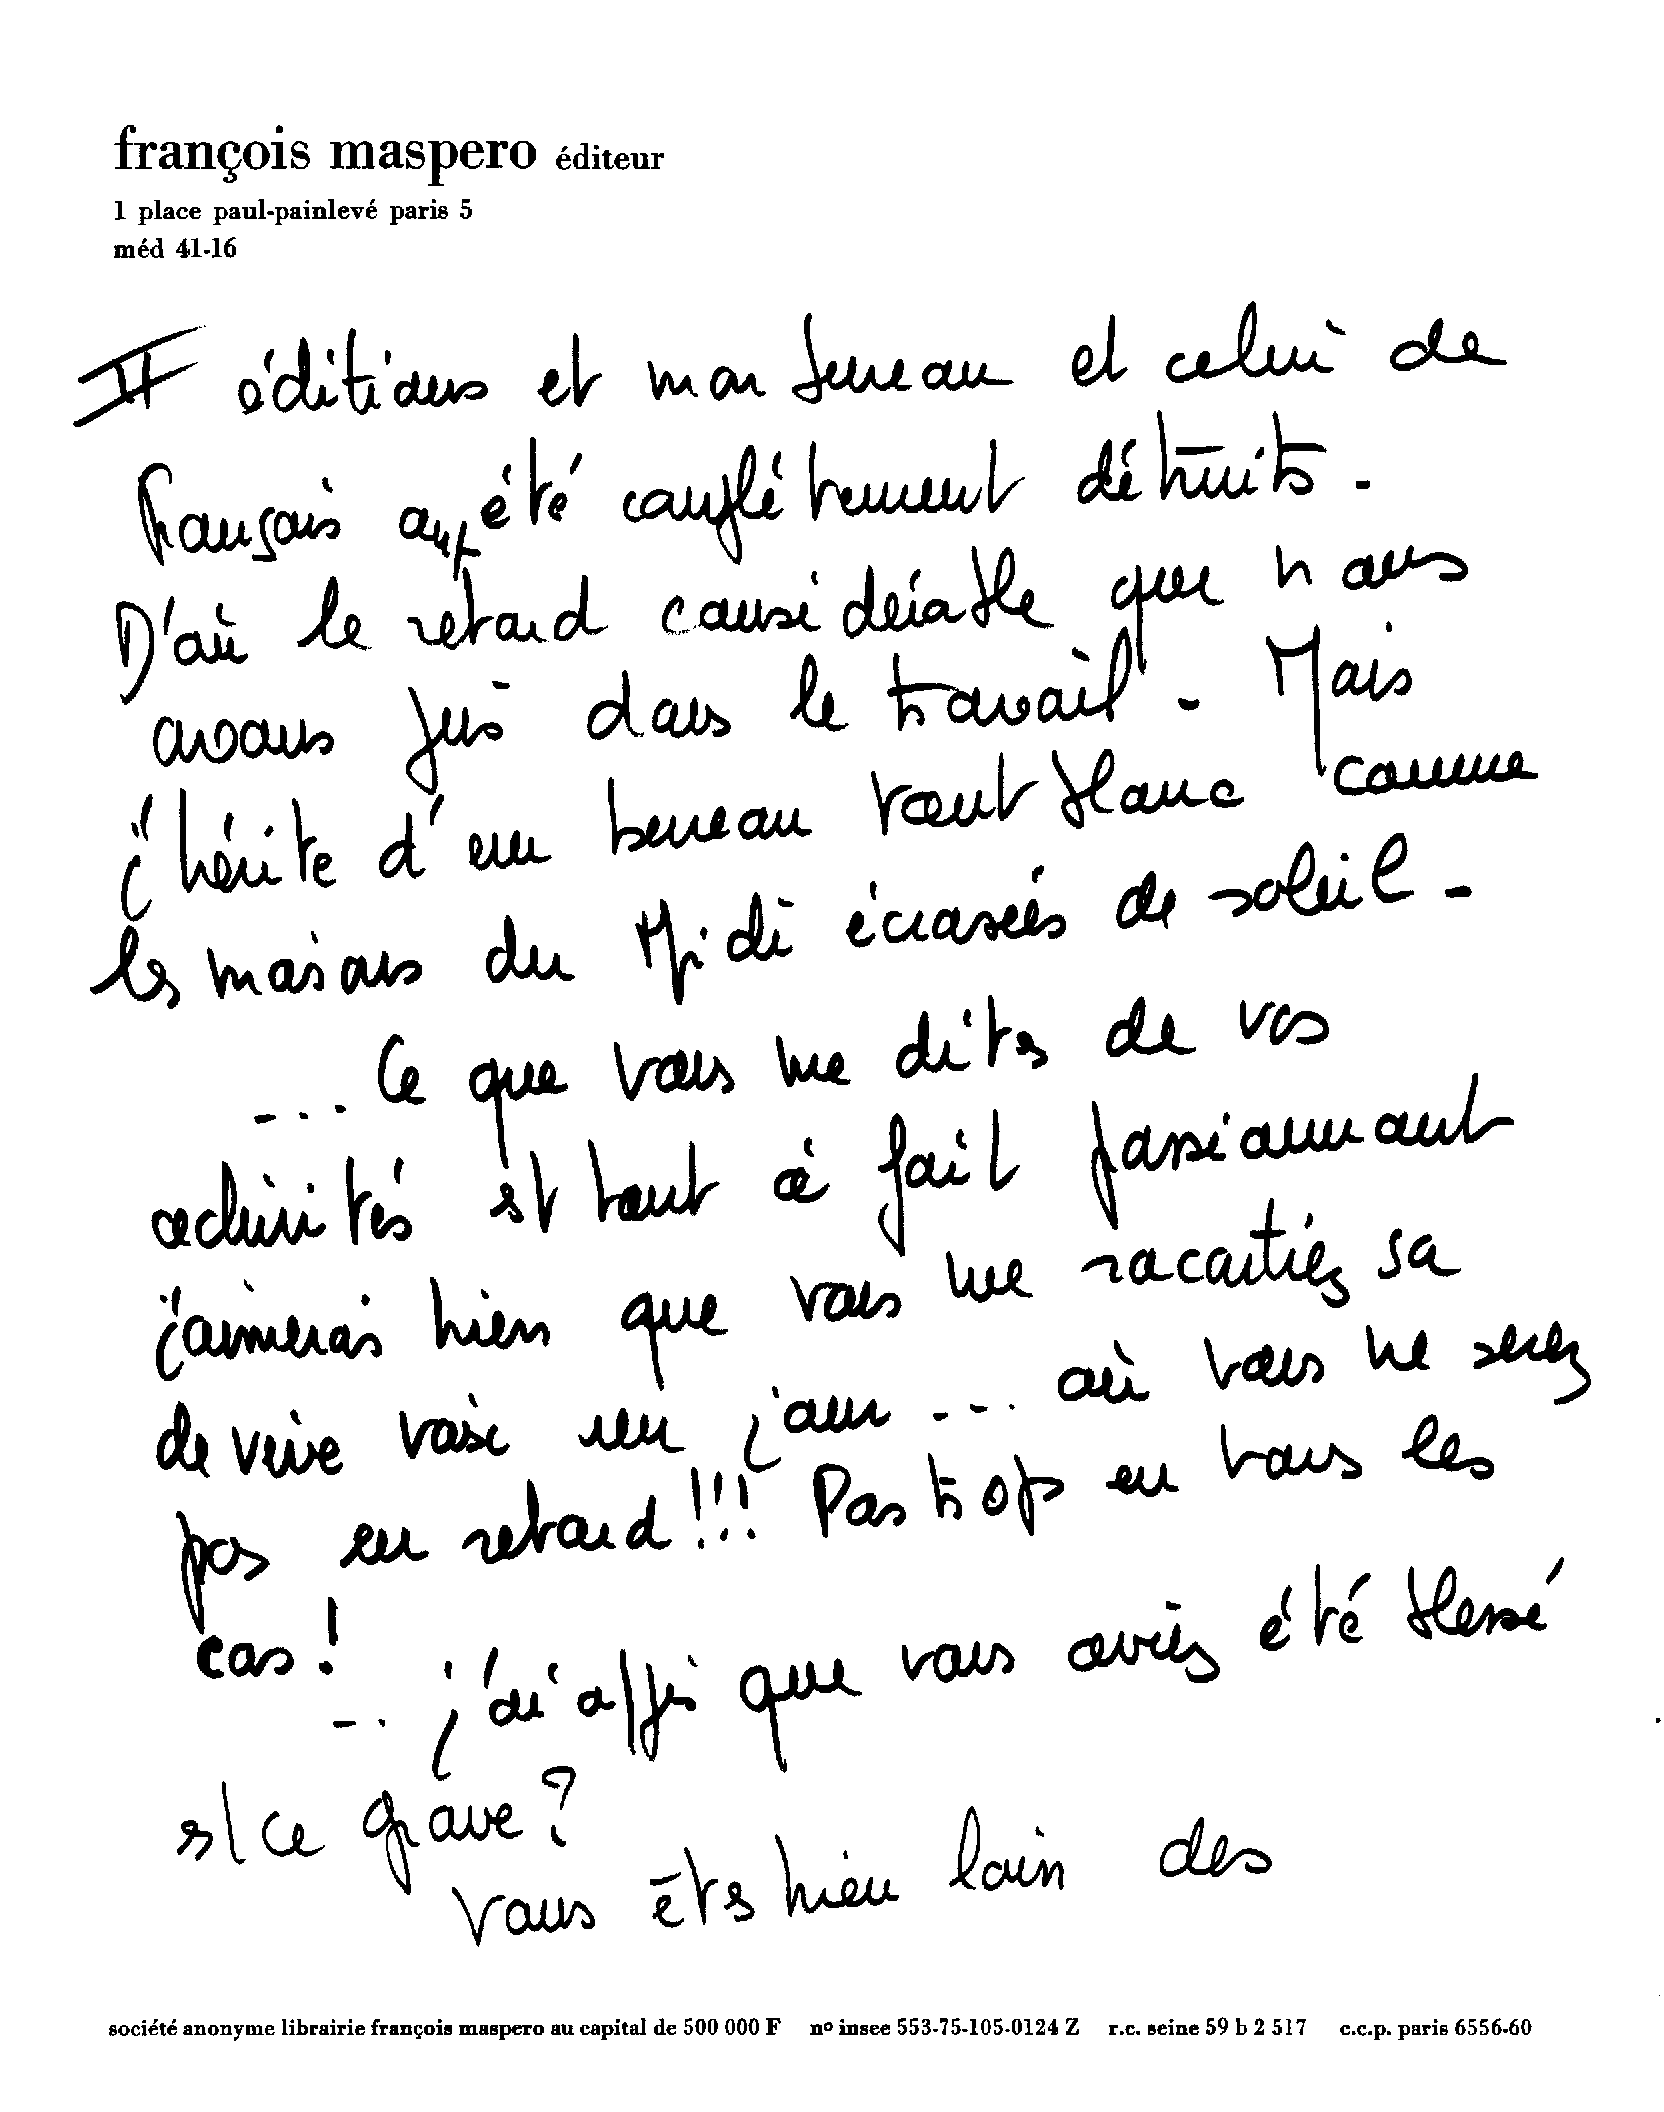 françois maspero éditeur
1 place paul-painlevé paris 5
méd 41-16
II éditions et mon bureau et celui de
François ont été complétement détruits -
D'où le retard considérable que nous
avons pris dans le travail - Mais
j'hérite d'un bureau tout blanc comme
les maisons du Midi écrasées de soleil -
... Ce que vous me dites de vos
activités est tout à fait passionnant
j'aimerais bien que vous me racontiez sa
de vive voix un jour ... où vous ne serez
pas en retard!!! Pas trop en tous les
cas!
... j'ai appris que vous aviez été blessé
est ce grave?
Vous êtes bien loin des
société anonyme librairie françois maspero au capital de 500 000 F nº insee 553-75-105-0124 Z r.c. seine 59 b 2 517 c.c.p. paris 6556-60